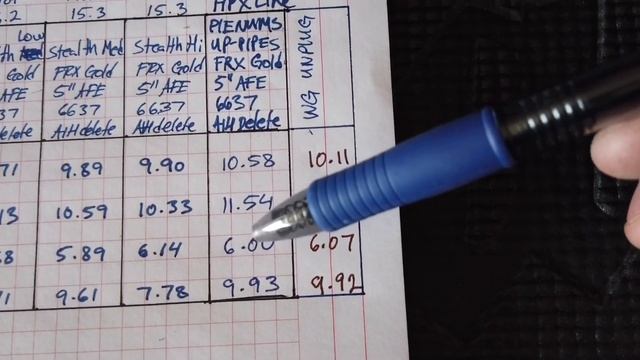 HPX LINE
5.2 15.3 15.3 PLENUMS
Low Stealth Med Stealth Hi UP-PIPES
Gold FRX Gold FRX Gold FRX Gold
AFE 5" AFE 5" AFE 5" AFE
37 6637 6637 6637
delete AH delete AH delete AH Delete
WG UNPLUG
71 9.89 9.90 10.58 10.11
13 10.59 10.33 11.54
8 5.89 6.14 6.00 6.07
1 9.61 7.78 9.93 9.92